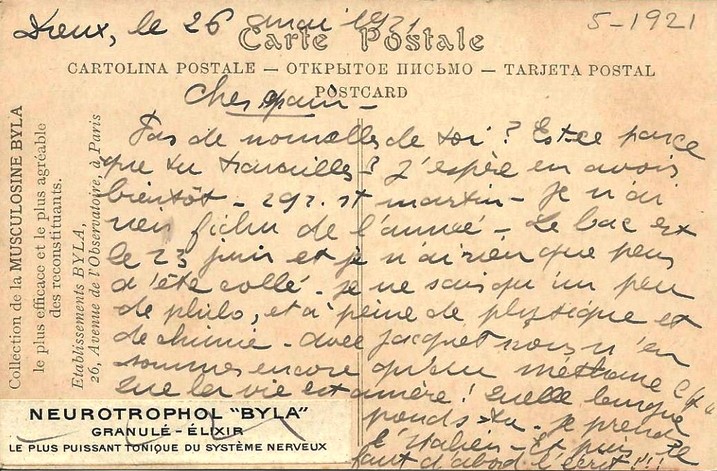 Dreux, le 26 mai 1921
5-1921
Carte Postale
CARTOLINA POSTALE — ОТКРЫТОЕ ПИСЬМО — TARJETA POSTAL
POSTCARD
Collection de la MUSCULOSINE BYLA
le plus efficace et le plus agréable
des reconstituants.
Etablissements BYLA,
26, Avenue de l'Observatoire, à Paris
Cher
Pas de nouvelles de toi ? Est ce parce
que tu travailles ? J'espère en avois
bientôt - st martin - Je n'ai
rien fichu de l'année - Le bac est
le 23 juin et je n'ai rien que peur
d'être collé. Je ne sais qu'un peu
de philo, et à peine de physique et
de chimie - avec Jacquet nous n'en
sommes encore qu'au méthane C H 4
Que la vie est amère ! Quelle langue
prends tu - je prends
l'Italien - Et puis
faut d'abord l'écrit !!!
NEUROTROPHOL "BYLA"
GRANULÉ - ÉLIXIR
LE PLUS PUISSANT TONIQUE DU SYSTÈME NERVEUX